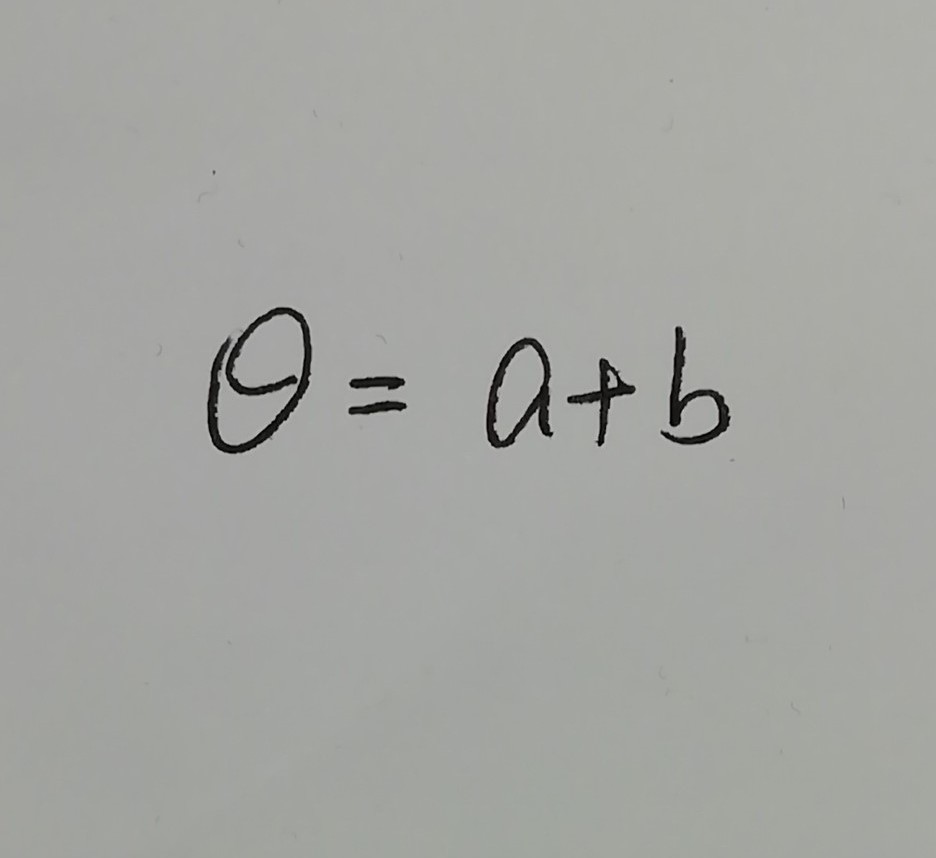 θ = a+b